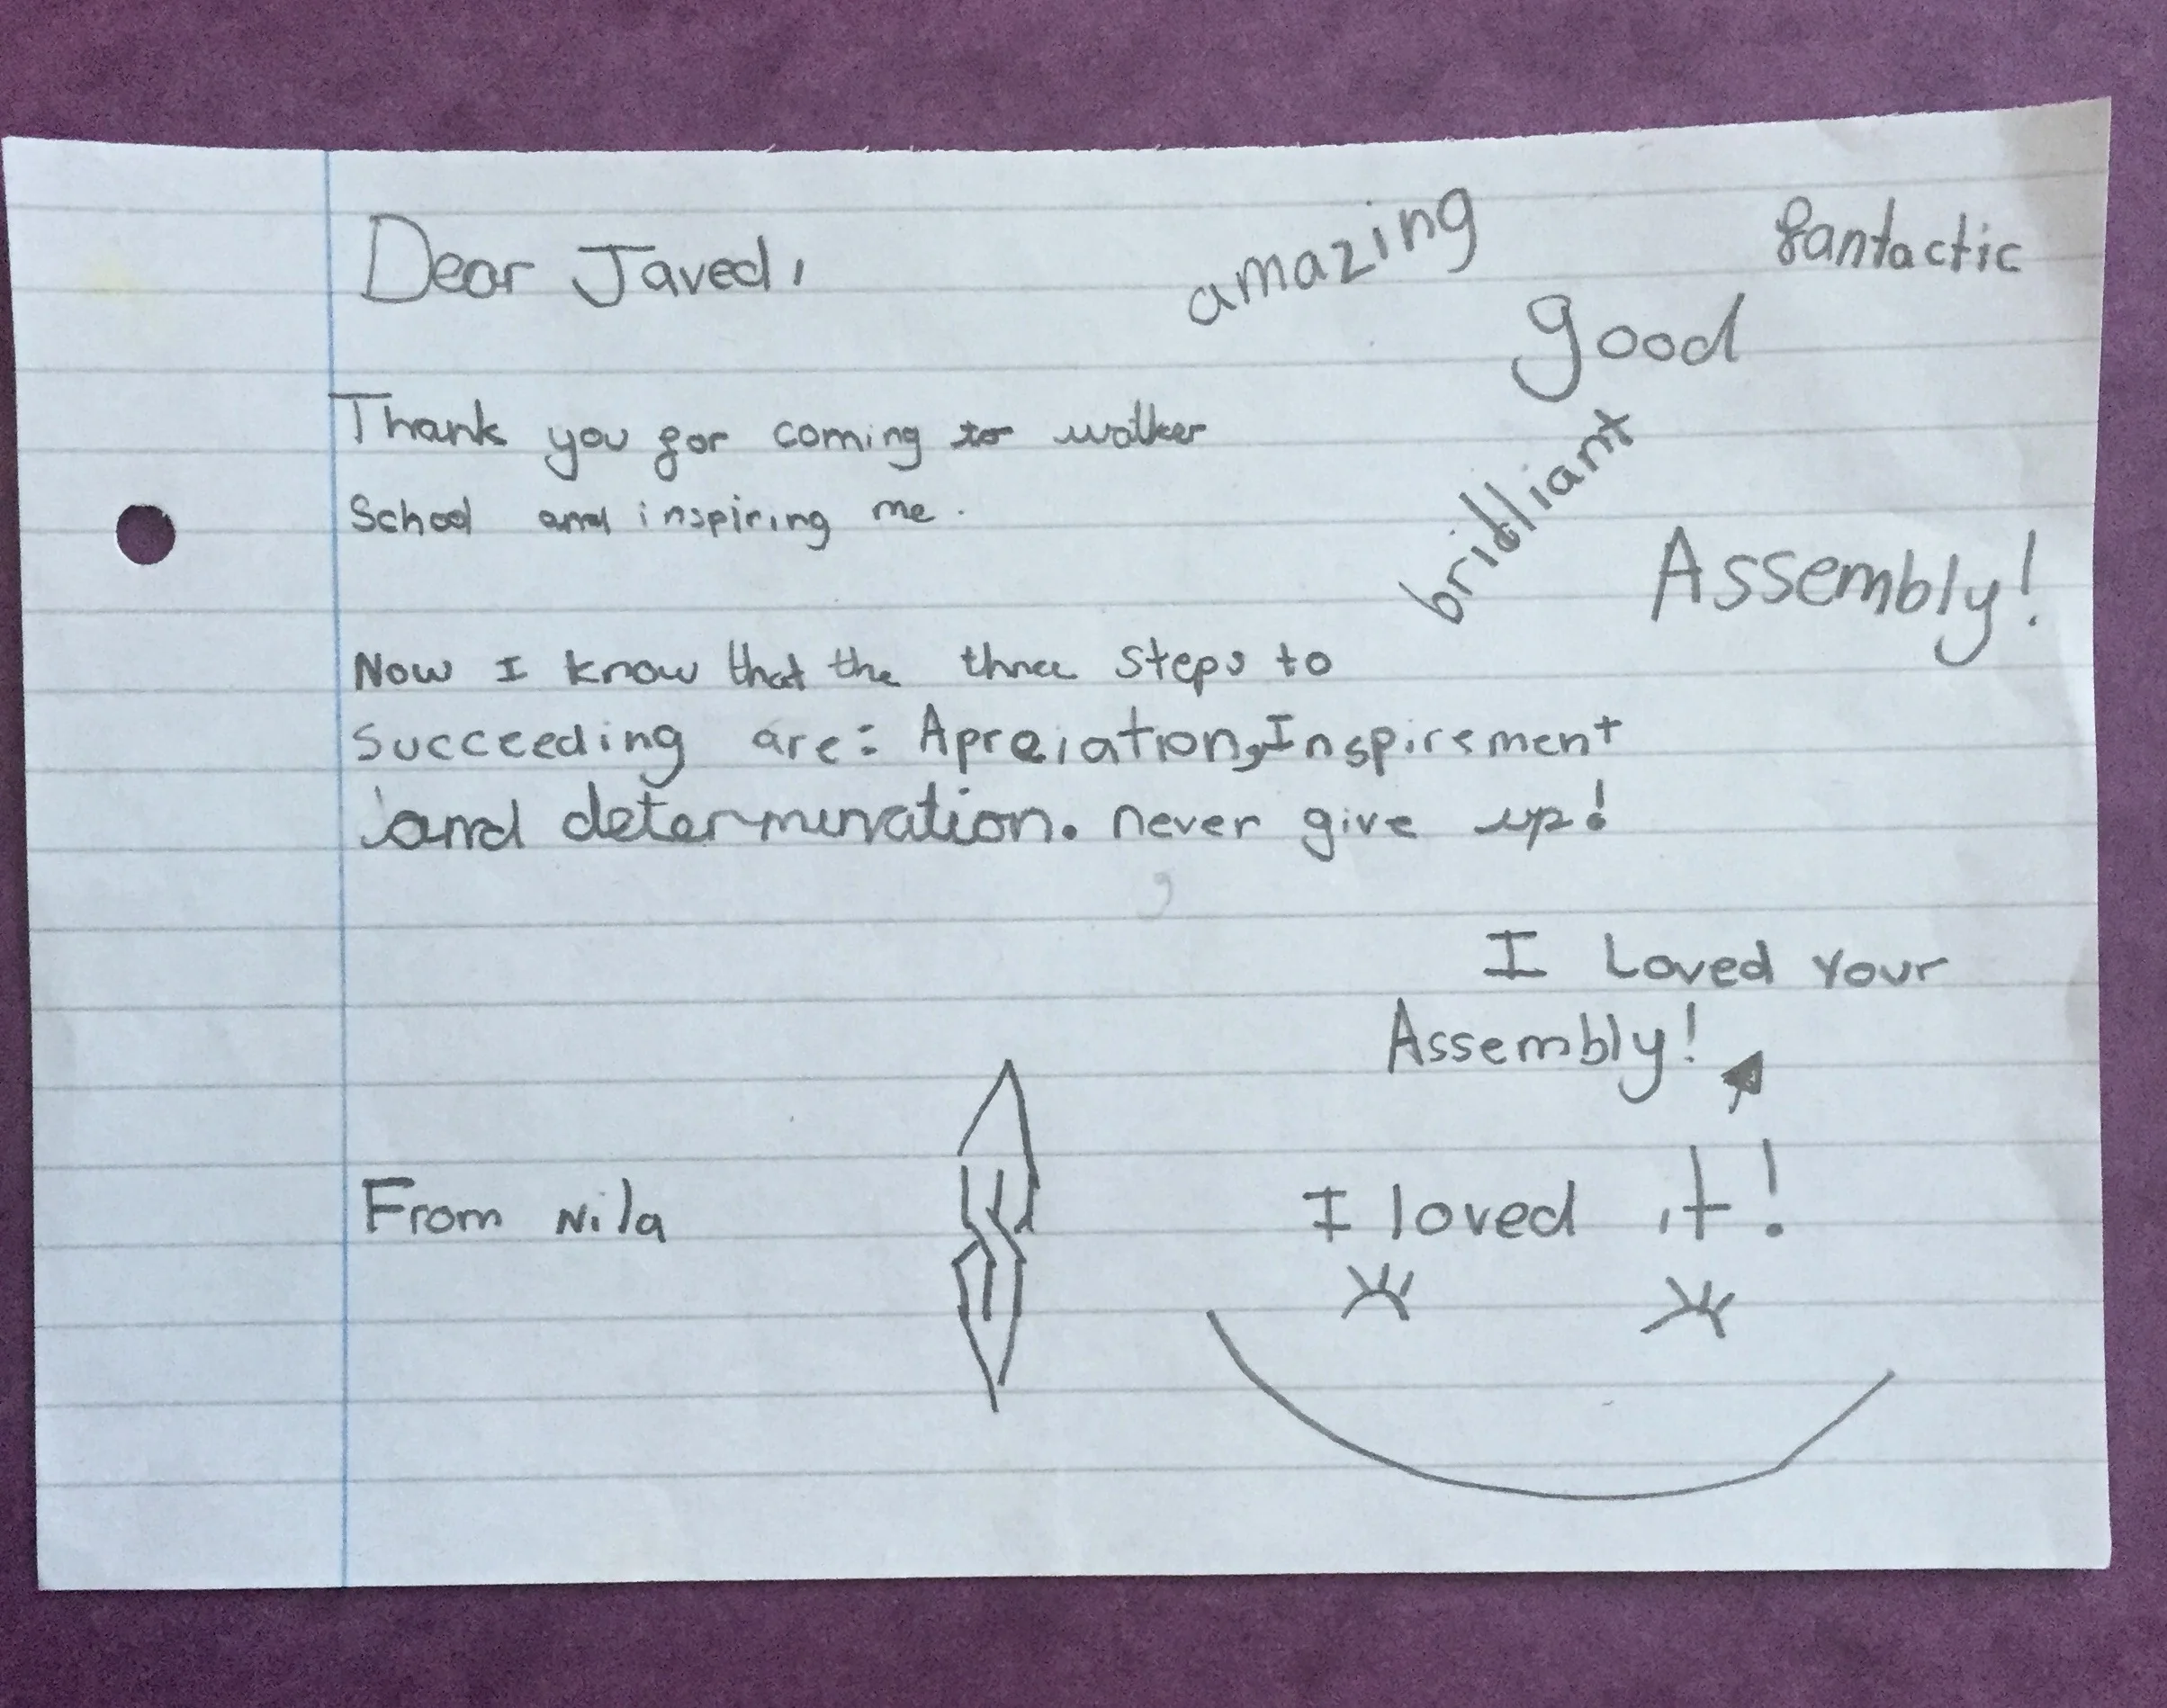 Dear Javed,
amazing
fantactic
good
brilliant
Assembly!
Thank you for coming to walker
School and inspiring me.
Now I know that the three steps to
succeeding are: Apreiation, Inspirement
and determination. never give up!
I Loved Your
Assembly!
From Nila
I loved it!